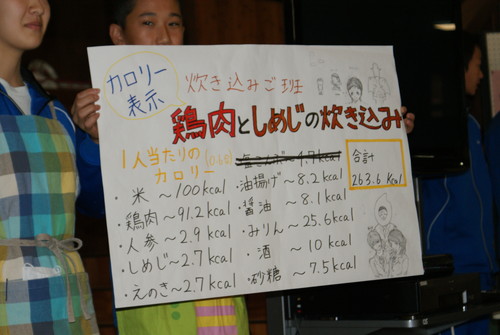 カロリー
表示
炊き込みご班
鶏肉としめじの炊き込み
1人当たりの
カロリー
・米 ～100kcal
・鶏肉～91.2kcal
・人参 ～2.9 kcal
・しめじ～2.7kcal
・えのき～2.7kcal
・油揚げ～8.2kcal
・醤油 ～ 8.1kcal
・みりん～25.6kcal
・酒 ～ 10 kcal
・砂糖 ～ 7.5kcal
合計
263.6 Kcal